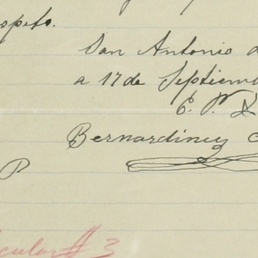 speto.
San Antonio d
a 17 de Septiem
E. P. D
Bernardiney C
P
cular # 3